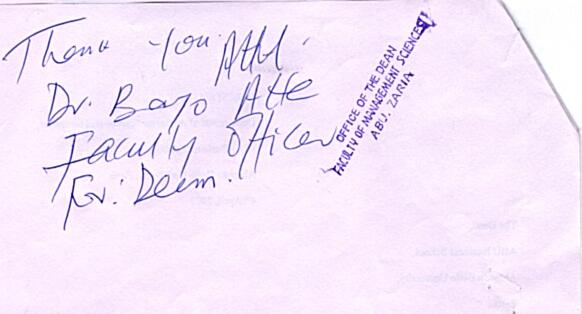 Thank You.
Dr. Bayo Atte
Faculty Officer
For: Dean.
OFFICE OF THE DEAN
FACULTY OF MANAGEMENT SCIENCES
ABU. ZARIA